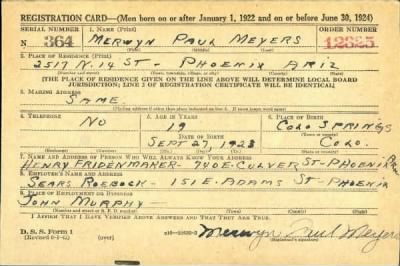 REGISTRATION CARD—(Men born on or after January 1, 1922 and on or before June 30, 1924)
SERIAL NUMBER 1. NAME (Print) ORDER NUMBER
N 364 MERWYN PAUL MEYERS 12525
(First) (Middle) (Last)
2. PLACE OF RESIDENCE (Print)
2517 N. 14 ST - PHOENIX ARIZ
(Number and street) (Town, township, village, or city) (County) (State)
[THE PLACE OF RESIDENCE GIVEN ON THE LINE ABOVE WILL DETERMINE LOCAL BOARD
JURISDICTION; LINE 2 OF REGISTRATION CERTIFICATE WILL BE IDENTICAL]
3. MAILING ADDRESS
SAME.
(Mailing address if other than place indicated on line 2. If same insert word same)
4. TELEPHONE 5. AGE IN YEARS 6. PLACE OF BIRTH
NO 19 COLO SPRINGS
DATE OF BIRTH
SEPT 27, 1923 COLO.
(Exchange) (Number) (Mo.) (Day) (Yr.) (State or country)
7. NAME AND ADDRESS OF PERSON WHO WILL ALWAYS KNOW YOUR ADDRESS
HENRY FRIDENMAKER- 740 E-CULVER ST-PHOENIX
8. EMPLOYER'S NAME AND ADDRESS
SEARS ROEBUCK - 151 E-ADAMS ST-PHOENIX
9. PLACE OF EMPLOYMENT OR BUSINESS
JOHN MURPHY-
(Number and street or R. F. D. number) (Town) (County) (State)
I AFFIRM THAT I HAVE VERIFIED ABOVE ANSWERS AND THAT THEY ARE TRUE.
D. S. S. Form 1
(Revised 6-1-42) (over) Merwyn Paul Meyers
(Registrant's signature)